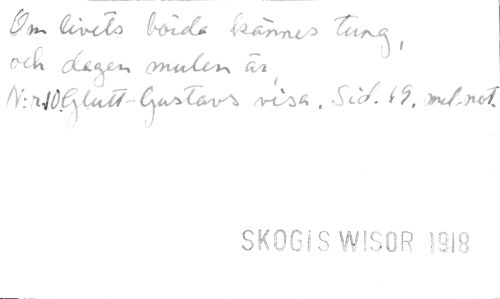 Om livets börda kännes tung,
och dagen mulen är,
N:r 10. Glutt-Gustavs visa. Sid. 19. mel.-not.
SKOGIS WISOR 1918